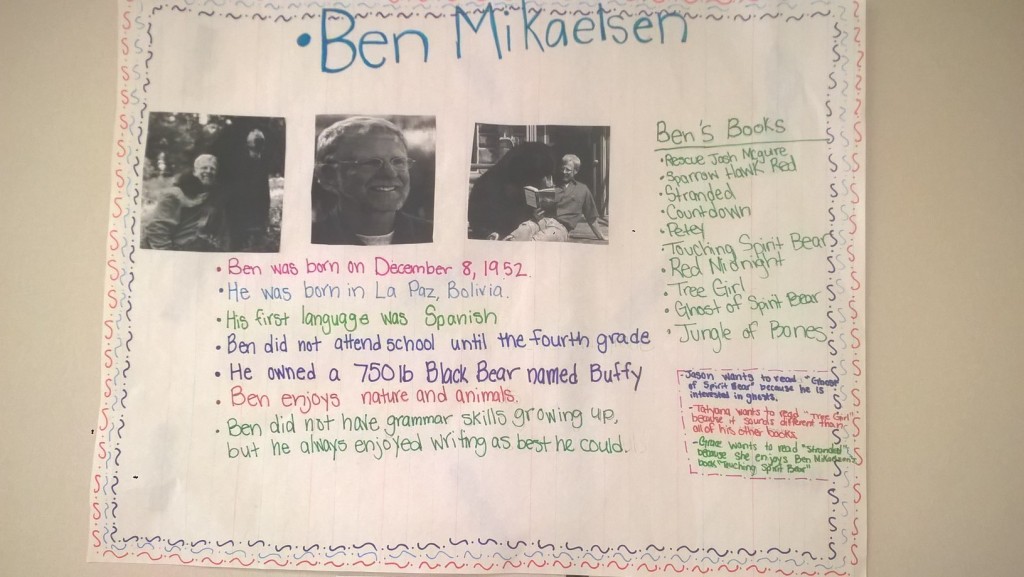 •Ben Mikaelsen
• Ben was born on December 8, 1952.
• He was born in La Paz, Bolivia.
• His first language was Spanish
• Ben did not attend school until the fourth grade
• He owned a 750lb Black Bear named Buffy
• Ben enjoys nature and animals.
• Ben did not have grammar skills growing up,
but he always enjoyed writing as best he could.
Ben's Books
•Rescue Josh McGuire
•Sparrow Hawk Red
•Stranded
•Countdown
•Petey
•Touching Spirit Bear
•Red Midnight
•Tree Girl
•Ghost of Spirit Bear
•Jungle of Bones
-Jason wants to read "Ghost
of Spirit Bear" because he is
interested in ghosts.
-Tatyana wants to read "Tree Girl"
because it sounds different than
all of his other books.
-Grace wants to read "Stranded"
because she enjoys Ben Mikaelsen's
book "Touching Spirit Bear"